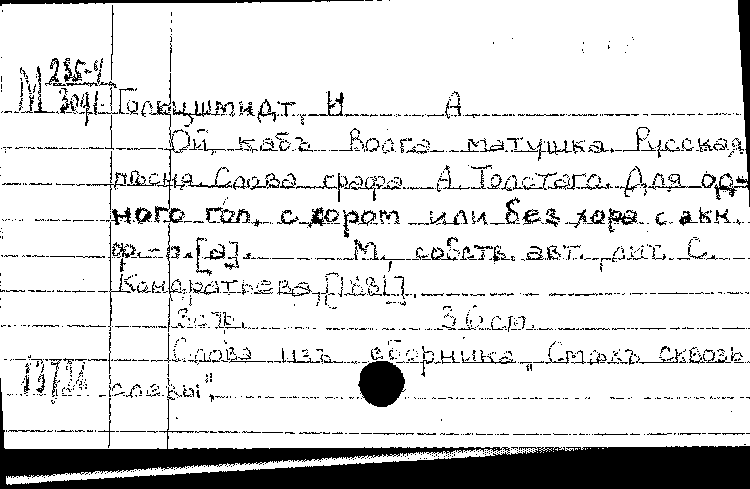 М 235-4
3091 Гольцшмидт, Н А
Ой, кабъ Волга матушка. Русская
пѣсня. Слова графа А. Толстого. Для од-
ного гол. с хором или без хора с акк.
ф.-п. [а]. М., собств. авт., лит. С.
Кондратьева, [1881].
3 стр. 36 см.
Слова изъ сборника „Смѣхъ сквозь
слезы".